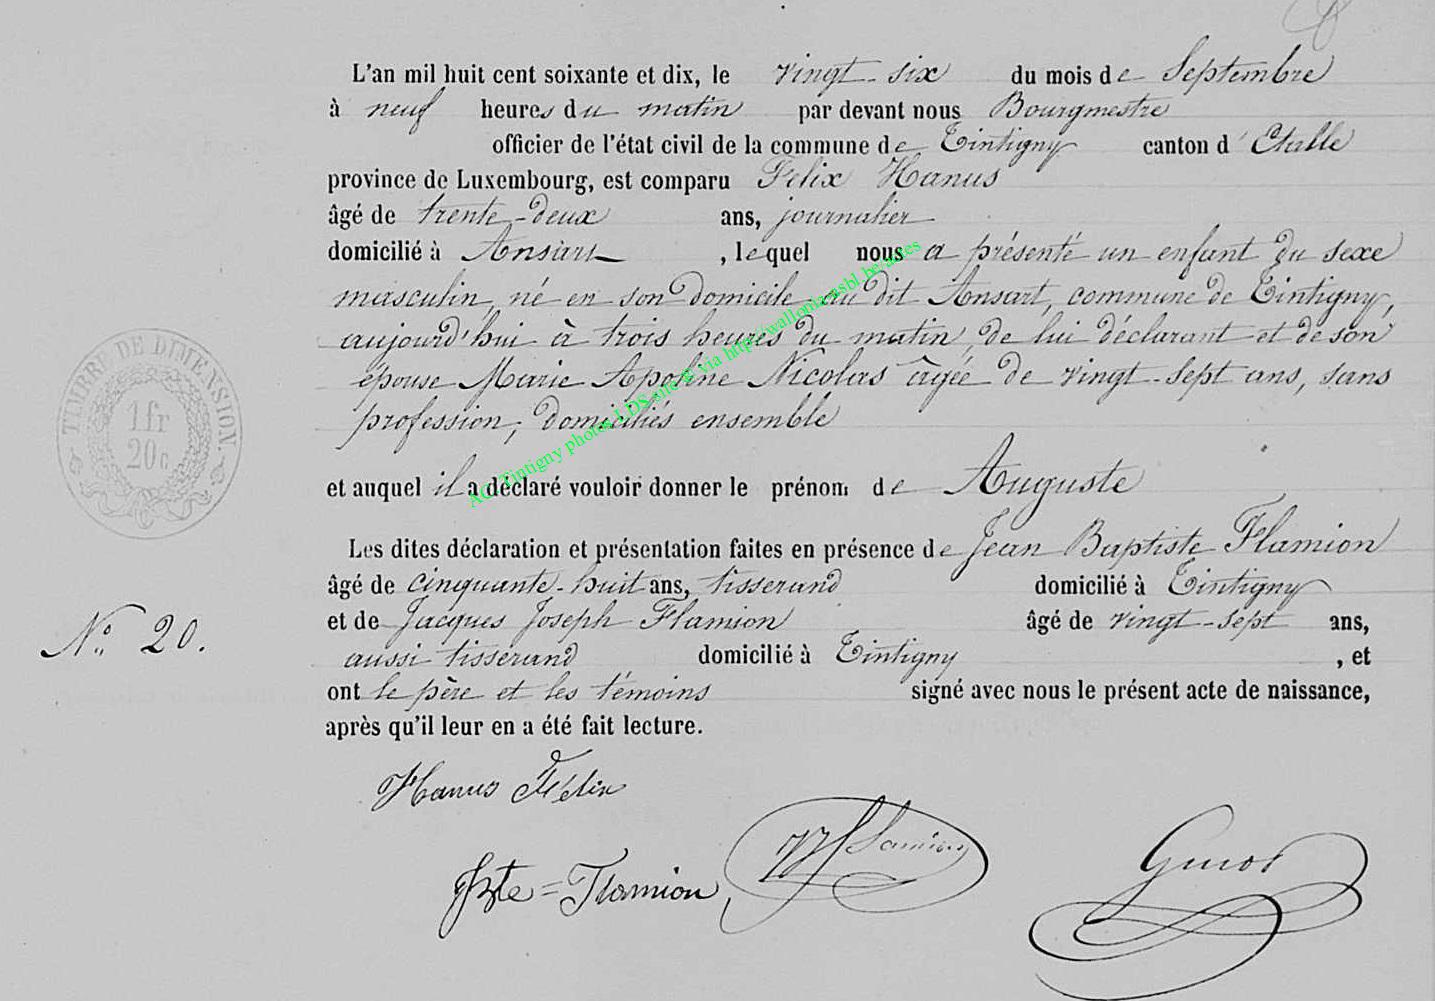 L'an mil huit cent soixante et dix, le vingt-six du mois de Septembre
à neuf heures du matin par devant nous Bourgmestre
officier de l'état civil de la commune de Tintigny canton d'Etalle
province de Luxembourg, est comparu Felix Hanus
âgé de trente-deux ans, journalier
domicilié à Ansart, lequel nous a présenté un enfant du sexe
masculin, né en son domicile au dit Ansart, commune de Tintigny,
aujourd'hui à trois heures du matin, de lui déclarant et de son
épouse Marie Apoline Nicolas âgée de vingt-sept ans, sans
profession, domiciliés ensemble
et auquel il a déclaré vouloir donner le prénom de Auguste
Les dites déclaration et présentation faites en présence de Jean Baptiste Flamion
âgé de cinquante-huit ans, tisserand domicilié à Tintigny
et de Jacques Joseph Flamion âgé de vingt-sept ans,
aussi tisserand domicilié à Tintigny, et
ont le père et les témoins signé avec nous le présent acte de naissance,
après qu'il leur en a été fait lecture.
N° 20.
TIMBRE DE DIMENSION.
1 fr
20 c
Hanus Félix
JBte = Flamion
JJ Flamion
AC Tintigny photos LDS site © via http://wallonia-asbl.be/actes